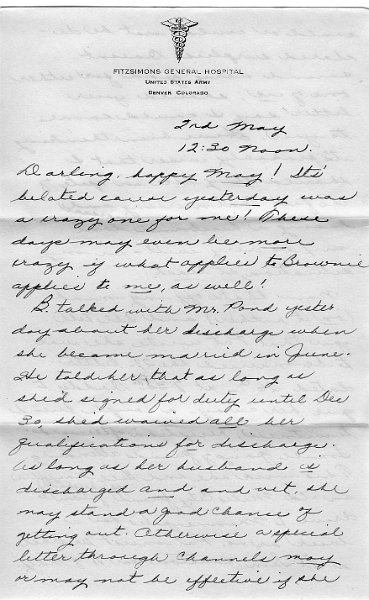 FITZSIMONS GENERAL HOSPITAL
UNITED STATES ARMY
DENVER, COLORADO
2nd May
12:30 Noon.
Darling, happy May! Its'
belated cause yesterday was
a crazy one for me! These
days may even be more
crazy if what applies to Brownie
applies to me, as well!
B. talked with Mr. Pond yester
day about her discharge when
she became married in June.
He told her that as long as
she'd signed for duty until Dec
30, she'd waived all her
qualifications for discharge.
As long as her husband is
discharged and and vet, she
may stand a good chance of
getting out. Otherwise a special
letter through channels may
or may not be effective if she